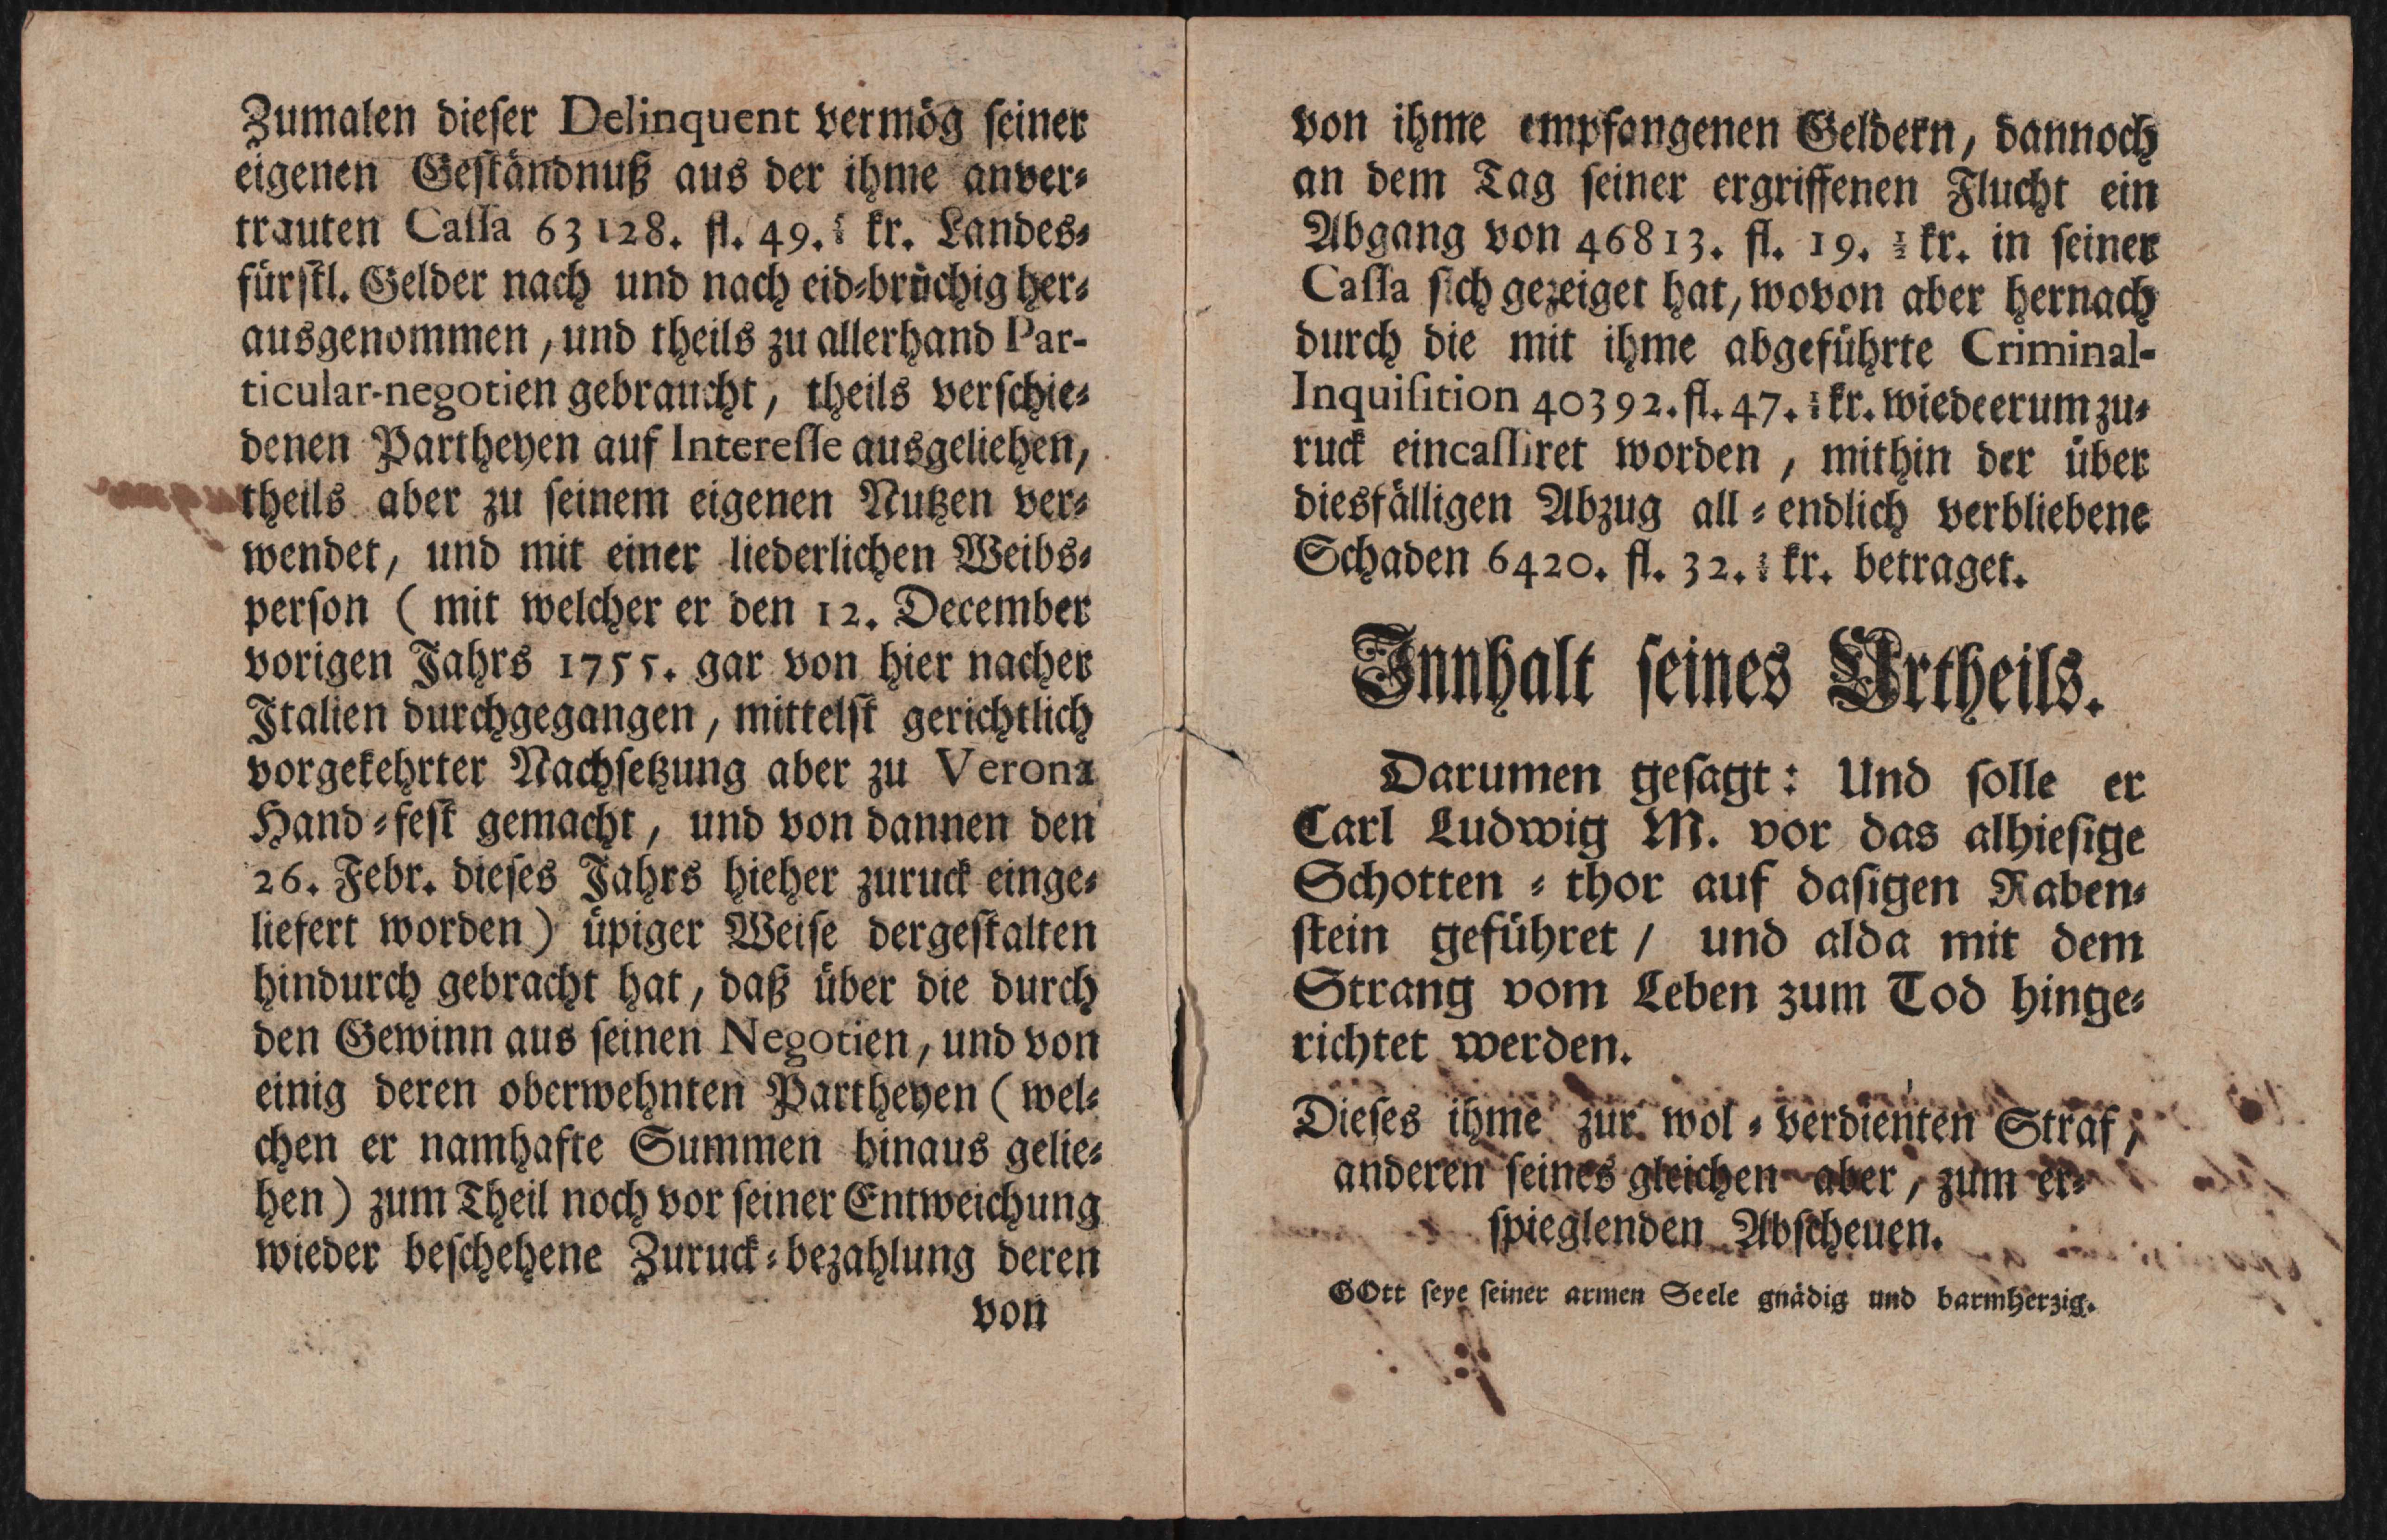 Zumalen dieser Delinquent vermög seiner
eigenen Geständnuß aus der ihme anver⸗
trauten Cassa 63128. fl. 49. kr. Landes⸗
fürstl. Gelder nach und nach eid⸗brüchig her⸗
ausgenommen, und theils zu allerhand Par-
ticular-negotien gebraucht, theils verschie⸗
denen Partheyen auf Interesse ausgeliehen,
theils aber zu seinem eigenen Nutzen ver⸗
wendet, und mit einer liederlichen Weibs⸗
person ( mit welcher er den 12. December
vorigen Jahrs 1755. gar von hier nacher
Italien durchgegangen, mittelst gerichtlich
vorgekehrter Nachsetzung aber zu Verona
Hand⸗fest gemacht, und von dannen den
26. Febr. dieses Jahrs hieher zuruck einge⸗
liefert worden) üpiger Weise dergestalten
hindurch gebracht hat, daß über die durch
den Gewinn aus seinen Negotien, und von
einig deren oberwehnten Partheyen ( wel⸗
chen er namhafte Summen hinaus gelie⸗
hen) zum Theil noch vor seiner Entweichung
wieder beschehene Zuruck⸗bezahlung deren
von
von ihme empfangenen Geldern, dannoch
an dem Tag seiner ergriffenen Flucht ein
Abgang von 46813. fl. 19. ½ kr. in seiner
Cassa sich gezeiget hat, wovon aber hernach
durch die mit ihme abgeführte Criminal-
Inquisition 40392. fl. 47. kr. wiedeerum zu⸗
ruck eincassiret worden, mithin der über
diesfälligen Abzug all⸗endlich verbliebene
Schaden 6420. fl. 32. kr. betraget.
Innhalt seines Urtheils.
Darumen gesagt: Und solle er
Carl Ludwig M. vor das alhiesige
Schotten⸗thor auf dasigen Raben⸗
stein geführet / und alda mit dem
Strang vom Leben zum Tod hinge⸗
richtet werden.
Dieses ihme zur wol⸗verdienten Straf,
anderen seines gleichen aber, zum er⸗
spieglenden Abscheuen.
GOtt seye seiner armen Seele gnädig und barmherzig.